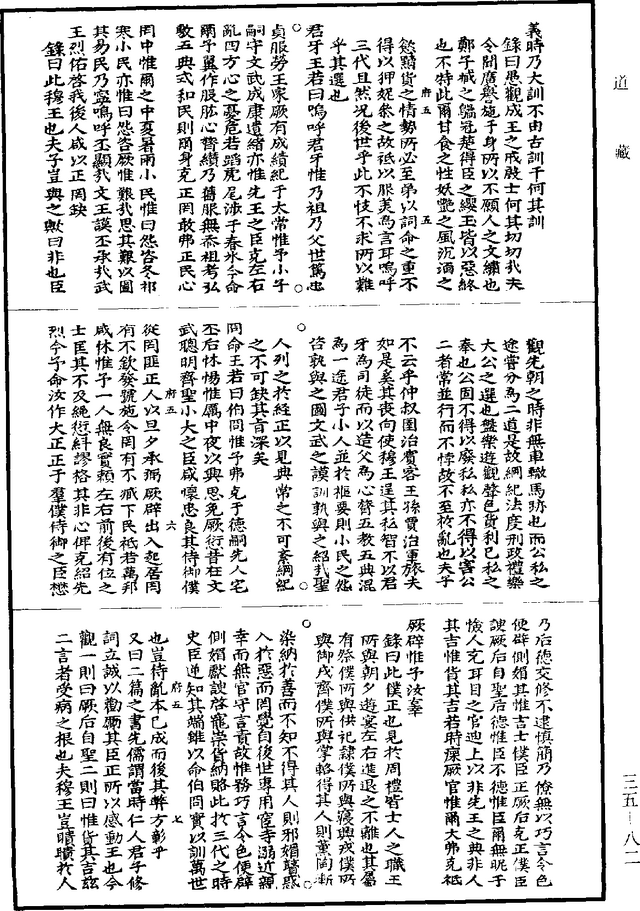 道藏
義時乃大訓不由古訓于何其訓
錄曰愚觀成王之戒殷士何其切切哉夫
令聞廣譽施于身所以不願人之文繡也
鄭子臧之鷸冠楚得臣之纓玉皆以惡終
也不特此爾甘食之性妖艷之風沉湎之
府五 五
慾黷貨之情勢所必至弟以詞命之重不
得以狎婬褻之故祗以服美為言耳嗚呼
三代且然況後世乎此不忮不求所以難
乎其選也
君牙王若曰嗚呼君牙惟乃祖乃父世篤忠
貞服勞王家厥有成績紀于太常惟予小子
嗣守文武成康遺緒亦惟先王之臣克左右
亂四方心之憂危若蹈虎尾涉于春冰今命
爾予翼作股肱心膂纘乃舊服無忝祖考弘
敷五典式和民則爾身克正罔敢弗正民心
罔中惟爾之中夏暑雨小民惟曰怨咨冬祁
寒小民亦惟曰怨咨厥惟艱哉思其艱以圖
其易民乃寧嗚呼丕顯哉文王謨丕承哉武
王烈佑啓我後人咸以正罔缺
錄曰此穆王也夫子豈與之歟曰非也臣
觀先朝之時非無車轍馬跡也而公私之
途嘗分為二道是故綱紀法度刑政禮樂
大公之選也盤樂遊觀聲色貨利已私之
奉也公固不得以廢私私亦不得以害公
二者常並行而不悖故不至於亂也夫子
不云乎仲叔圉治賓客王孫賈治軍旅夫
如是奚其喪向使穆王逞其私智不以君
牙為司徒而以造父為心膂五教五典混
為一途君子小人並於樞要則小民之怨
咨孰與之圖文武之謨訓孰與之紹哉聖
人列之於經正以見典常之不可紊綱紀
之不可缺其旨深矣
冏命王若曰伯冏惟予弗克于德嗣先人宅
丕后怵惕惟厲中夜以興思免厥愆昔在文
武聰明齊聖小大之臣咸懷忠良其侍御僕
府五 六
從罔匪正人以旦夕承弼厥辟出入起居罔
有不欽發號施令罔有不臧下民祇若萬邦
咸休惟予一人無良實賴左右前後有位之
士匡其不及繩愆糾謬格其非心俾克紹先
烈今予命汝作大正正于羣僕侍御之臣懋
乃后德交修不逮慎簡乃僚無以巧言令色
便辟側媚其惟吉士僕臣正厥后克正僕臣
諛厥后自聖后德惟臣不德惟臣爾無昵于
憸人充耳目之官迪上以非先王之典非人
其吉惟貨其吉若時瘝厥官惟爾大弗克祗
厥辟惟予汝辜
錄曰此僕正也見於周禮皆士人之職王
所與朝夕遊宴左右進退之不離也其屬
有祭僕所與供祀隸僕所與寢興戎僕所
與御戎齊僕所與掌輅得其人則薰陶漸
染納於善而不知不得其人則邪媚瞽惑
入於惡而罔覺自後世專用寵寺溺近親
幸而無官守言責故惟務巧言令色便辟
側媚獻諛啓寵崇貨納賂此於三代之時
史臣逆知其端雖以命伯冏實以訓萬世
府五 七
也豈待亂本已成而後其弊方彰乎
又曰二篇之書先儒謂當時仁人君子修
詞立誠以勸厲其臣正所以感動王也今
觀一則曰厥后自聖二則曰惟貨其吉茲
二言者受病之根也夫穆王豈暱瞶於人
三五-八二